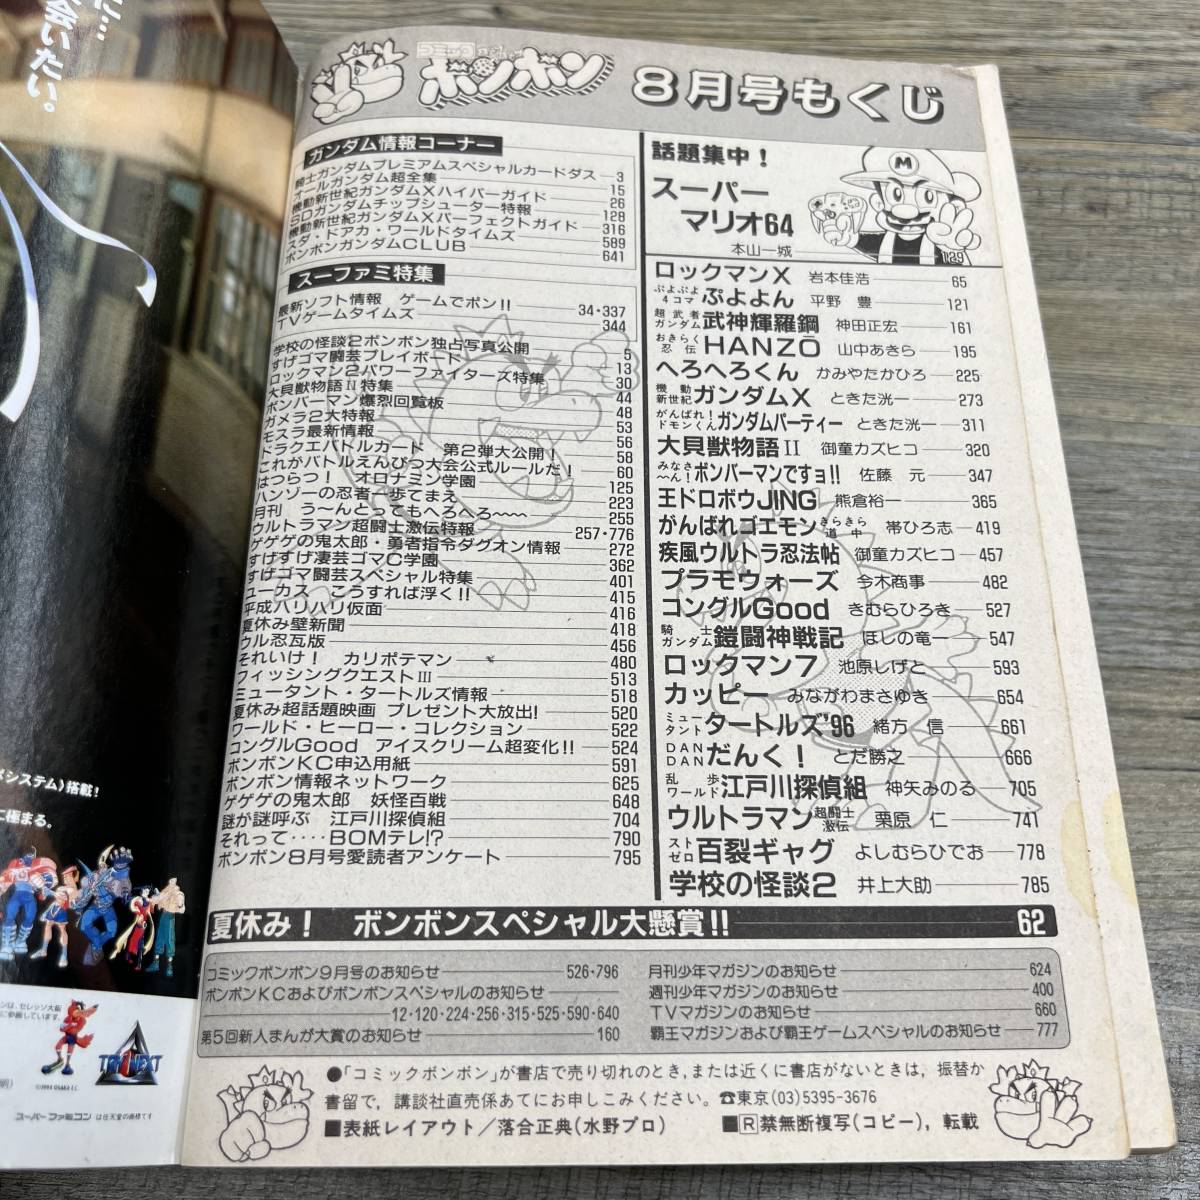 に…
会いたい。
コミック ボンボン
8月号もくじ
ガンダム情報コーナー
騎士ガンダムプレミアムスペシャルカードダス 3
オールガンダム超全集 15
機動新世紀ガンダムXハイパーガイド 26
SDガンダムチップシューター特報 128
機動新世紀ガンダムXパーフェクトガイド 316
スダ・ドアカ・ワールドタイムズ 589
ボンボンガンダムCLUB 641
スーファミ特集
最新ソフト情報 ゲームでポン!! 34・337
TVゲームタイムズ 344
学校の怪談2ボンボン独占写真公開 5
すげゴマ闘芸プレイボード 13
ロックマン2パワーファイターズ特集 30
大貝獣物語II特集 44
ボンバーマン爆烈回覧板 48
ガメラ2大特報 53
モスラ最新情報 56
ドラクエバトルカード 第2弾大公開! 58
これがバトルえんぴつ大会公式ルールだ! 60
はつらつ! オロナミン学園 125
ハンゾーの忍者一歩てまえ 223
月刊 う〜んとってもへろへろ〜〜〜 255
ウルトラマン超闘士激伝特報 257・776
ゲゲゲの鬼太郎・勇者指令ダグオン情報 272
すげすげ凄芸ゴマC学園 362
すげゴマ闘芸スペシャル特集 401
ユーカス こうすれば浮く!! 415
平成ハリハリ仮面 416
夏休み壁新聞 418
ウル忍瓦版 456
それいけ! カリポテマン 480
フィッシングクエストIII 513
ミュータント・タートルズ情報 518
夏休み超話題映画 プレゼント大放出! 520
ワールド・ヒーロー・コレクション 522
コングルGood アイスクリーム超変化!! 524
ボンボンKC申込用紙 591
ボンボン情報ネットワーク 625
ゲゲゲの鬼太郎 妖怪百戦 648
謎が謎呼ぶ 江戸川探偵組 704
それって‥‥BOMテレ!? 790
ボンボン8月号愛読者アンケート 795
話題集中!
スーパー
マリオ64
本山一城
M
129
ロックマンX 岩本佳浩 65
ぷよぷよ4コマ ぷよよん 平野 豊 121
超武者ガンダム 武神輝羅鋼 神田正宏 161
おきらく忍伝 HANZO 山中あきら 195
へろへろくん かみやたかひろ 225
機動新世紀 ガンダムX ときた洸一 273
がんばれ!ドモンくん ガンダムパーティー ときた洸一 311
大貝獣物語II 御童カズヒコ 320
みなさ〜ん! ボンバーマンですョ!! 佐藤 元 347
王ドロボウJING 熊倉裕一 365
がんばれゴエモン きらきら道中 帯ひろ志 419
疾風ウルトラ忍法帖 御童カズヒコ 457
プラモウォーズ 今木商事 482
コングルGood きむらひろき 527
騎士ガンダム 鎧闘神戦記 ほしの竜一 547
ロックマン7 池原しげと 593
カッピー みながわまさゆき 654
ミュータント タートルズ'96 緒方 信 661
DANDAN だんく! とだ勝之 666
乱歩ワールド 江戸川探偵組 神矢みのる 705
ウルトラマン 超闘士激伝 栗原 仁 741
ストゼロ 百裂ギャグ よしむらひでお 778
学校の怪談2 井上大助 785
夏休み! ボンボンスペシャル大懸賞!! 62
コミックボンボン9月号のお知らせ 526・796
ボンボンKCおよびボンボンスペシャルのお知らせ
12・120・224・256・315・525・590・640
第5回新人まんが大賞のお知らせ 160
月刊少年マガジンのお知らせ 624
週刊少年マガジンのお知らせ 400
TVマガジンのお知らせ 660
覇王マガジンおよび覇王ゲームスペシャルのお知らせ 777
●「コミックボンボン」が書店で売り切れのとき,または近くに書店がないときは,振替か
書留で,講談社直売係あてにお申しこみください。☎東京(03)5395-3676
■表紙レイアウト/落合正典(水野プロ)
■R禁無断複写(コピー),転載
システム)搭載!
に極まる。
は、セレッソ大阪
に参画しています。
©1994 OSAKA F.C.
TRY NEXT
スーパーファミコンは任天堂の商標です